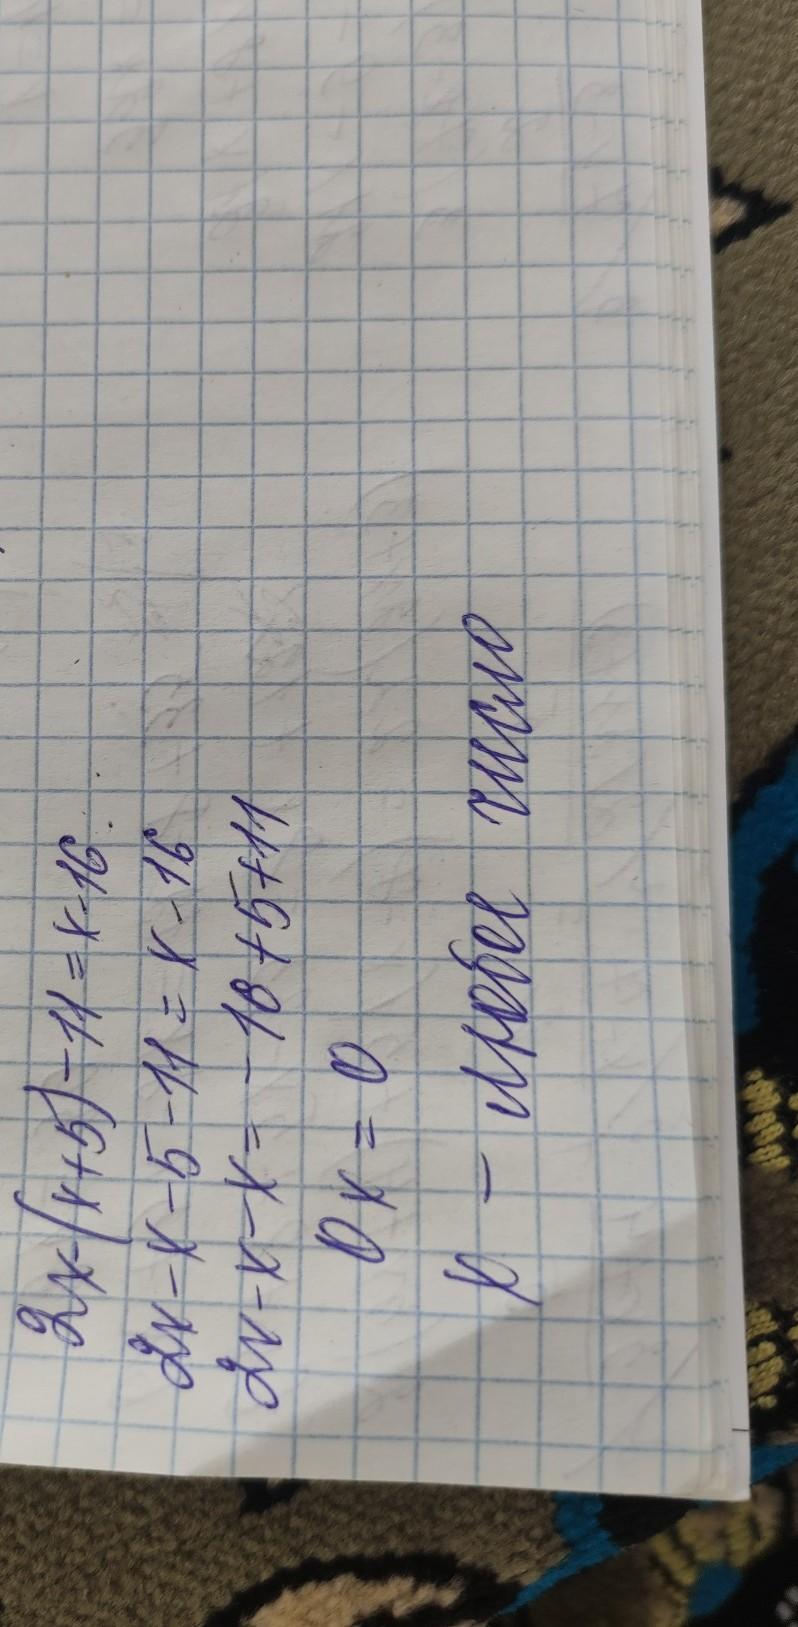 2x-(x+5)-11=x-16
2x-x-5-11=x-16
2x-x-x=-16+5+11
0x=0
x - любое число